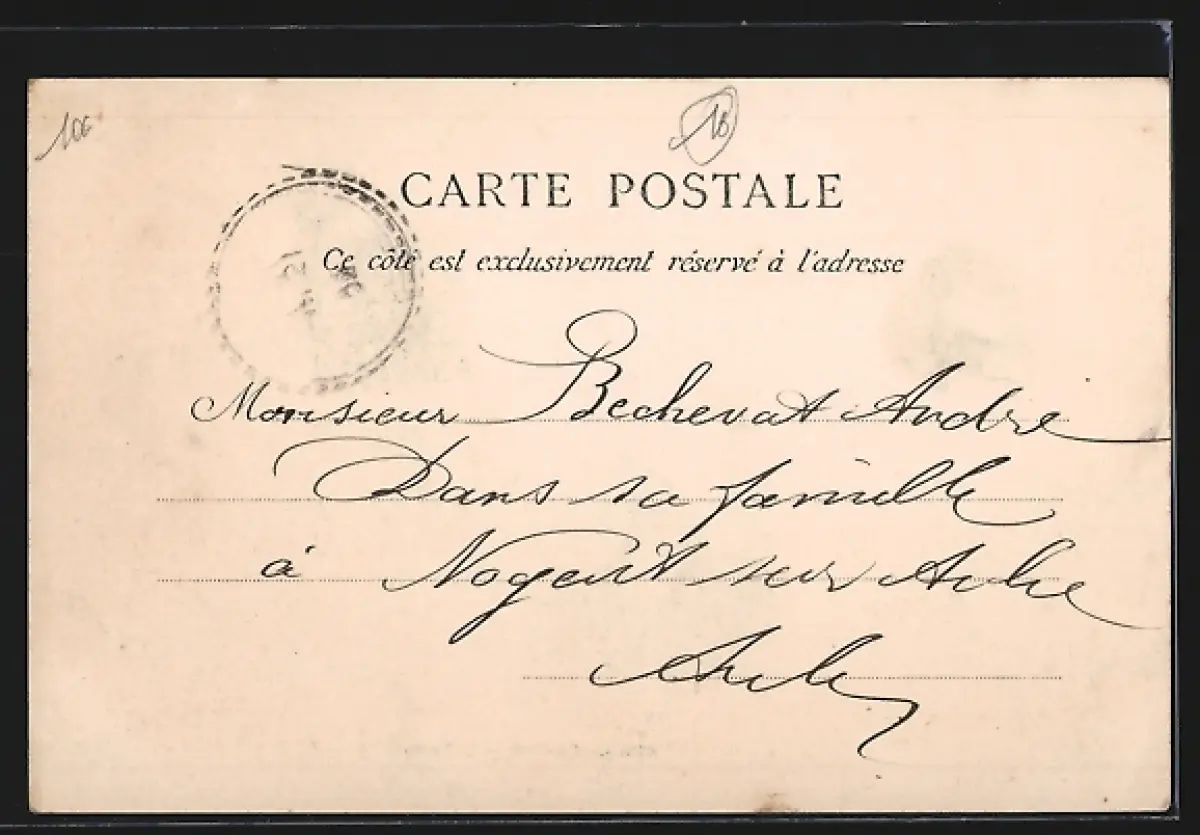 CARTE POSTALE
Ce côté est exclusivement réservé à l'adresse
Monsieur Bechevat André
Dans sa famille
à Nogent sur Aube
Aube